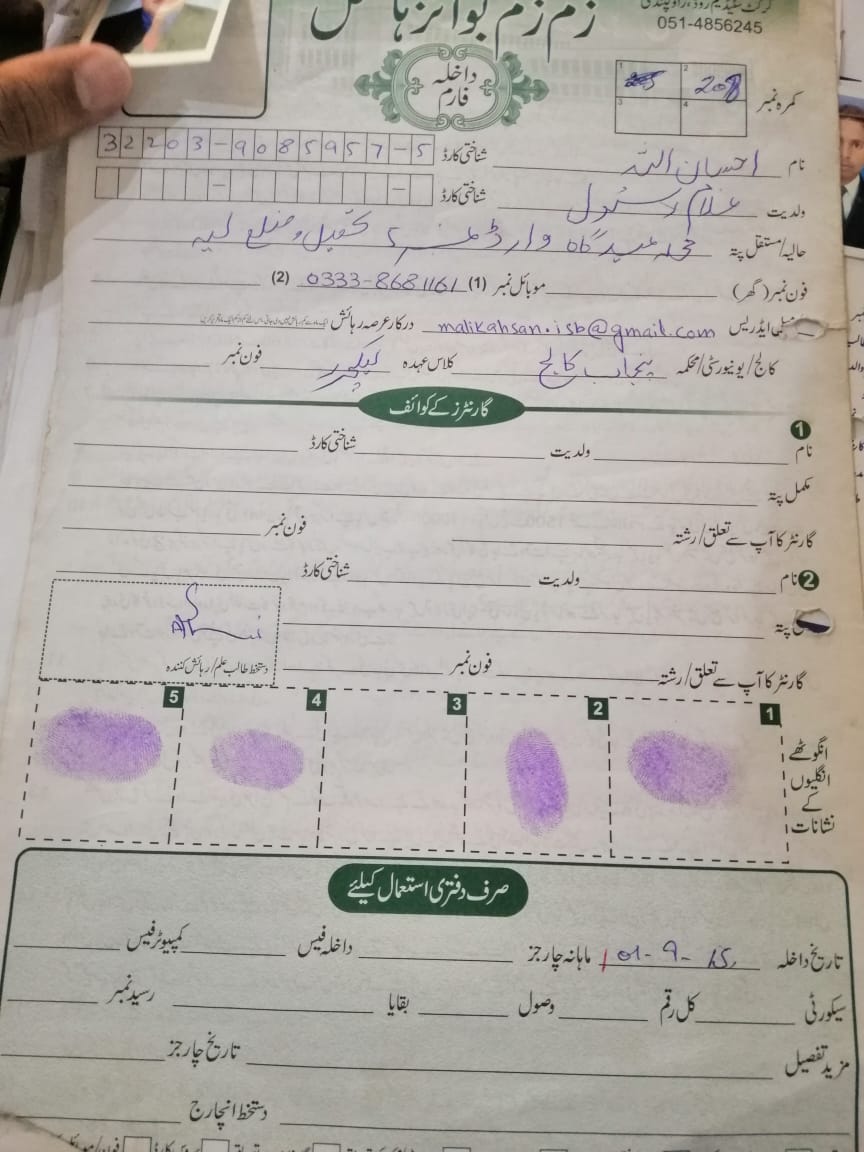 زم زم بوائز ہاسٹل
کرکٹ سٹیڈیم روڈ، راولپنڈی
051-4856245
داخلہ فارم
کمرہ نمبر 1 2 208
3 4
نام احسان اللہ شناختی کارڈ 32203-9085957-5
ولدیت غلام رسول شناختی کارڈ - -
حالیہ/مستقل پتہ محلہ عیدگاہ وارڈ نمبر تحصیل و ضلع لیہ
فون نمبر (گھر) موبائل نمبر (1) 0333-8681161 (2)
ایڈریس malikahsan.isb@gmail.com درکار عرصہ رہائش
کالج/یونیورسٹی/محکمہ پنجاب کالج کلاس عہدہ لیکچرر فون نمبر
گارنٹرز کے کوائف
1 نام ولدیت شناختی کارڈ
مکمل پتہ
گارنٹر کا آپ سے تعلق/رشتہ فون نمبر
2 نام ولدیت شناختی کارڈ
پتہ
گارنٹر کا آپ سے تعلق/رشتہ فون نمبر
دستخط طالب علم/رہائش کنندہ
انگوٹھے انگلیوں کے نشانات 1 2 3 4 5
صرف دفتری استعمال کیلئے
تاریخ داخلہ 01-9-15 ماہانہ چارجز داخلہ فیس کمپیوٹر فیس
سیکورٹی کل رقم وصول بقایا رسید نمبر
مزید تفصیل تاریخ چارجز
دستخط انچارج